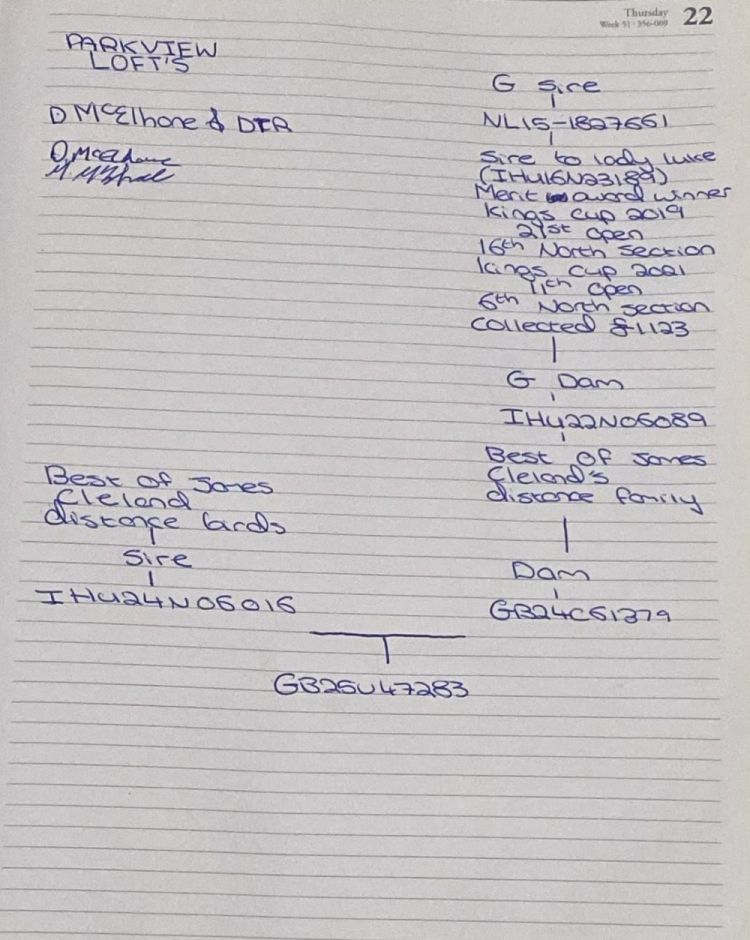 Thursday 22
Week 51 · 356-009
PARKVIEW
LOFT'S
D McElhone & DTR
D. McElhone
G Sire
NL15-1827661
Sire to lady luke
(IHU16N23189)
Merit award winner
Kings Cup 2019
21st Open
16th North Section
Kings Cup 2021
11th Open
6th North Section
Collected £1123
G Dam
IHU22N06089
Best Of James
Cleland's
distance family
Dam
GB24C61379
Best Of James
Cleland
distance birds
Sire
IHU24N06016
GB25U47283